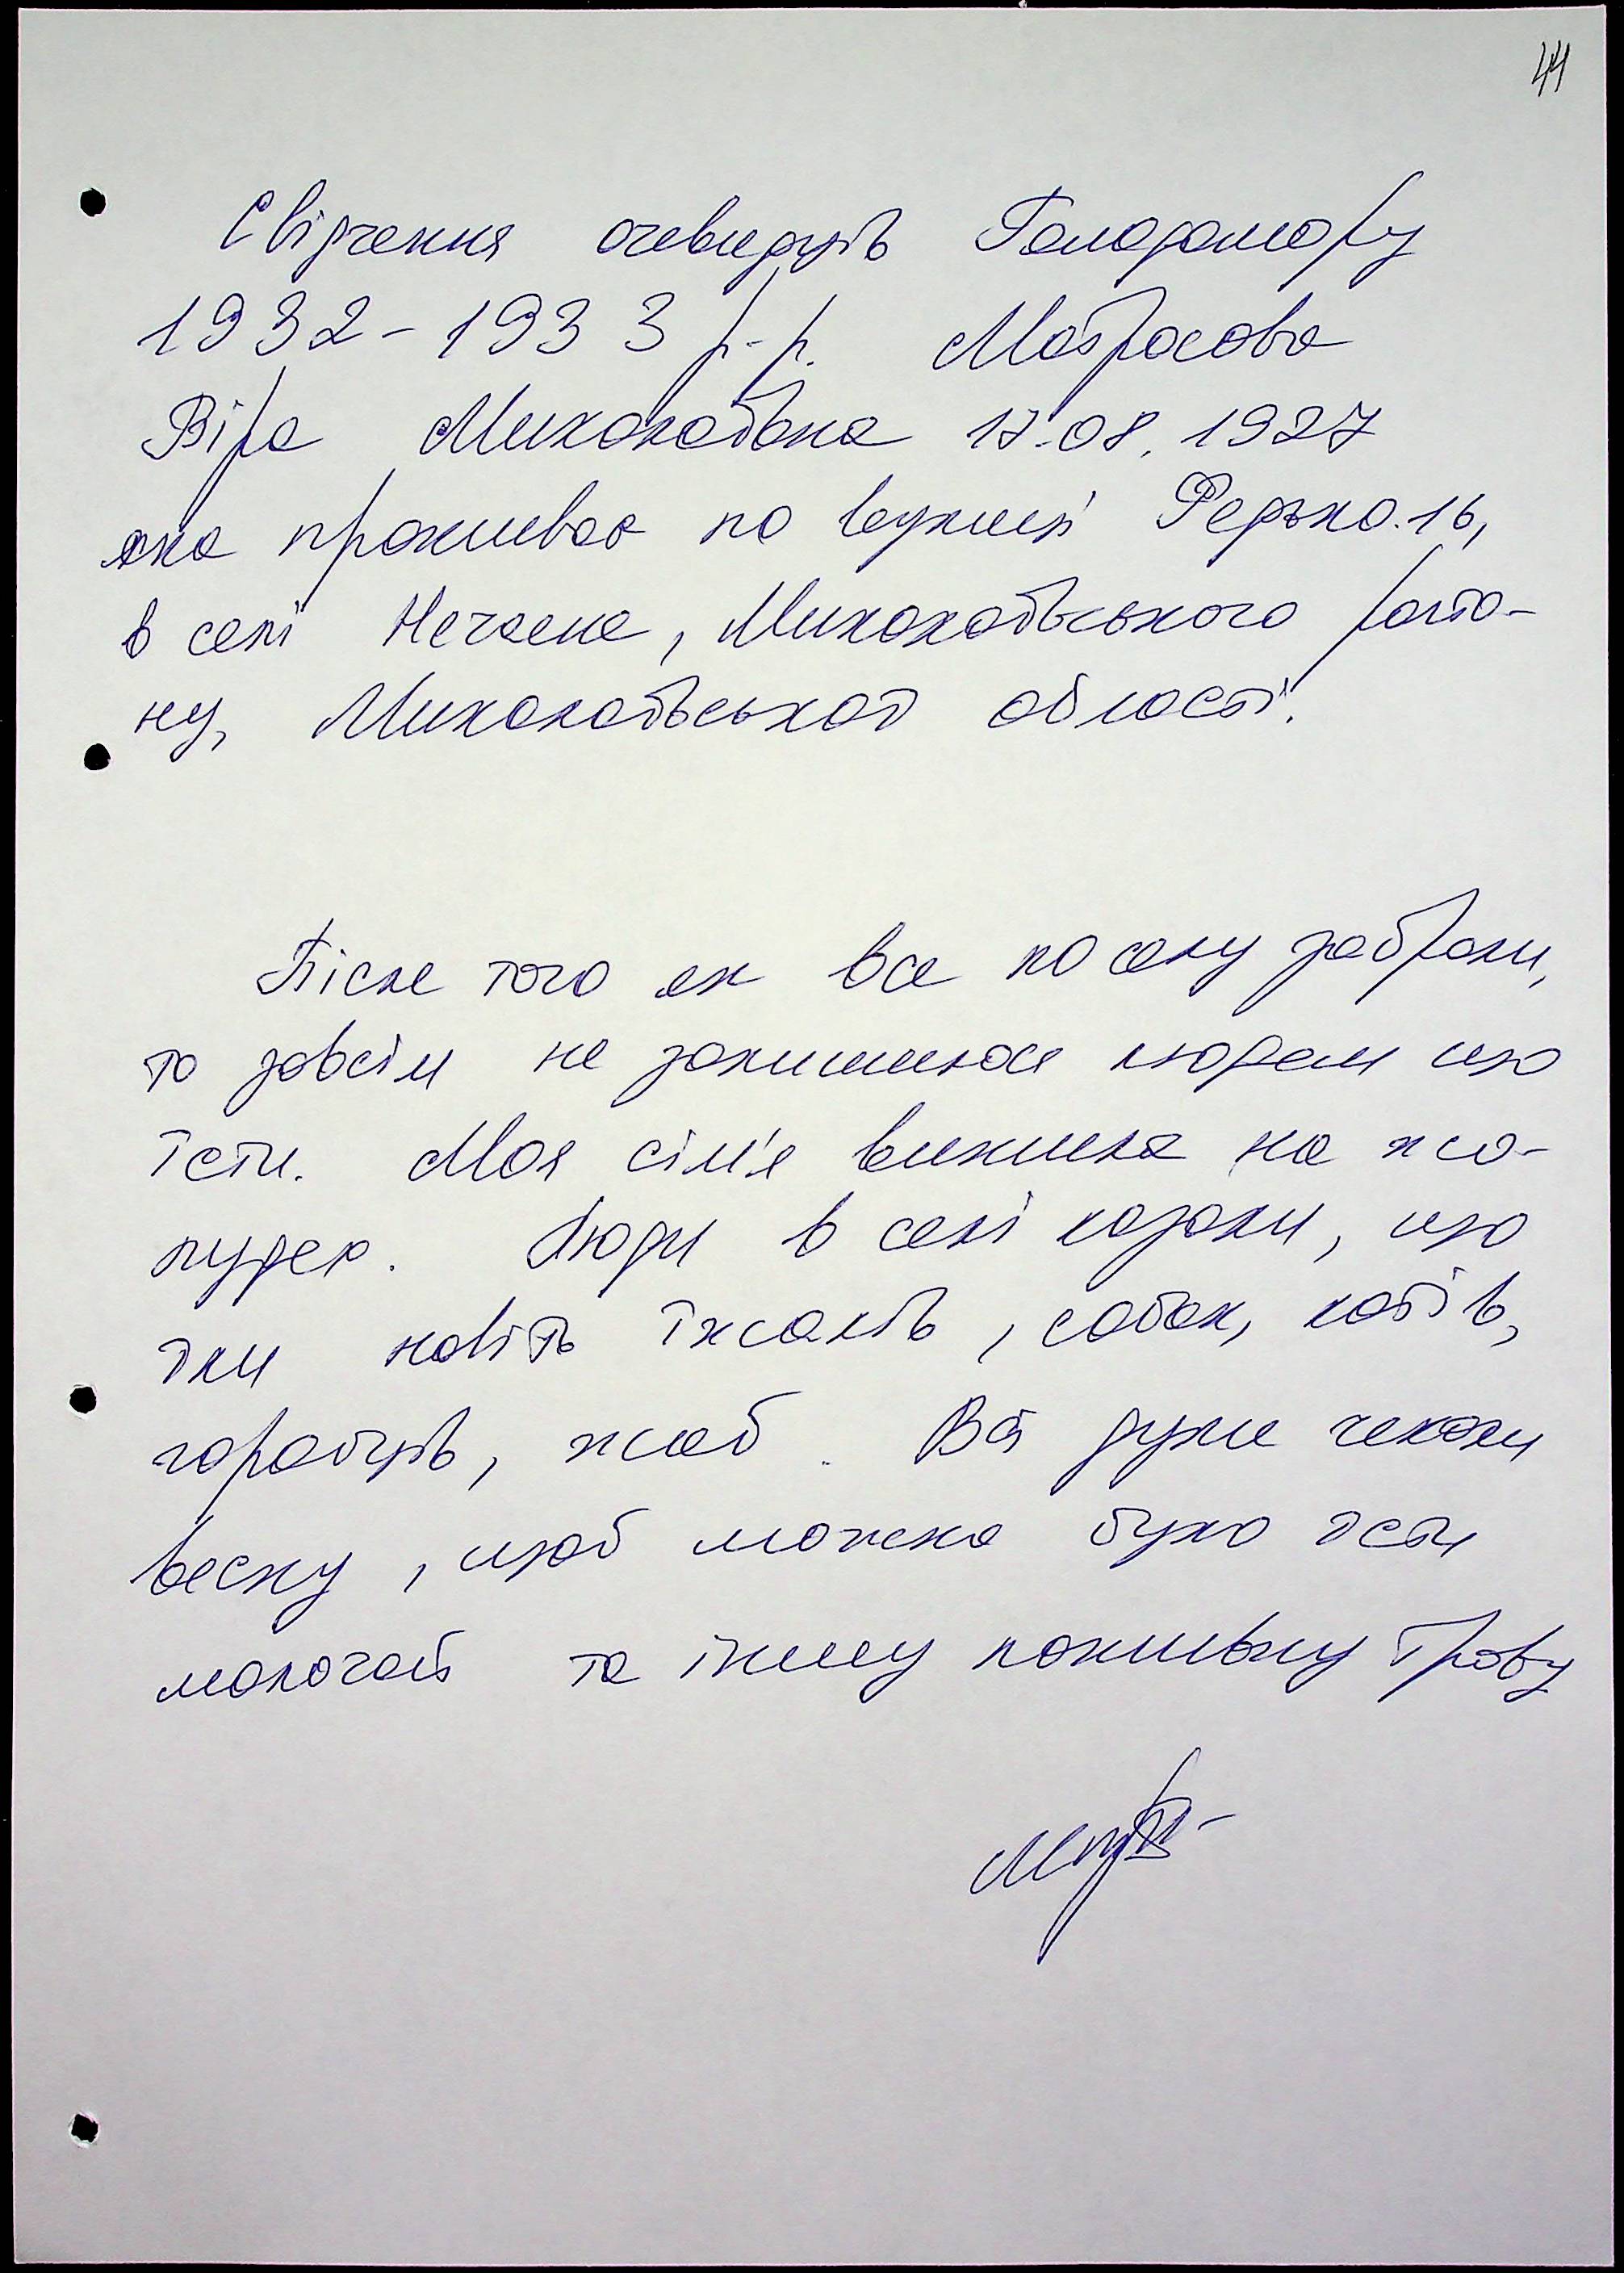 44
Свідчення очевидців Голодомору
1932-1933 р-р. Матросова
Віра Миколаївна 17.08.1927
яка проживає по вулиці Федько.16,
в селі Нечаяне, Миколаївського райо-
ну, Миколаївської області.
Після того як все по селу забрали,
то зовсім не залишилося людям що
їсти. Моя сім'я вижила на жо-
лудях. Люди в селі казали, що
їли навіть їжаків, собак, котів,
горобців, жаб. Всі дуже чекали
весну, щоб можна було їсти
молочай та іншу поживну траву